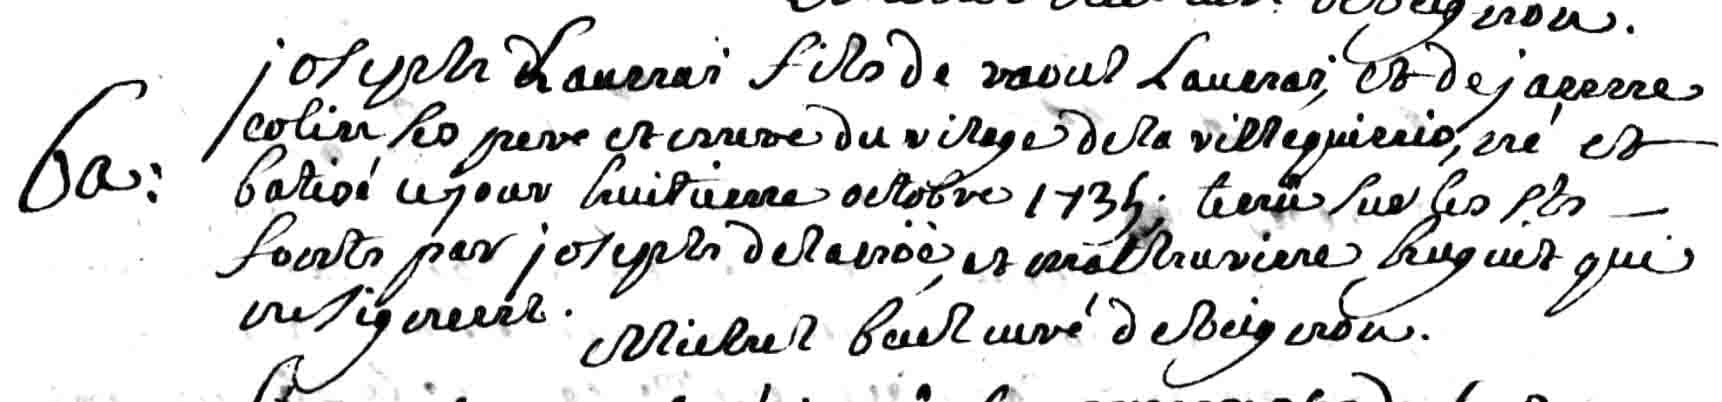 de beignon.
joseph Launai fils de raoul Launai, et de jacenne
Ba: colin ses pere et mere du vilage de la villeguienio, né et
batisé ce jour huitienne octobre 1735. tenü sur les sts
fonts par joseph delanoë, et mathurinne huguet qui
ne signent.
Michel buel curé de beignon.